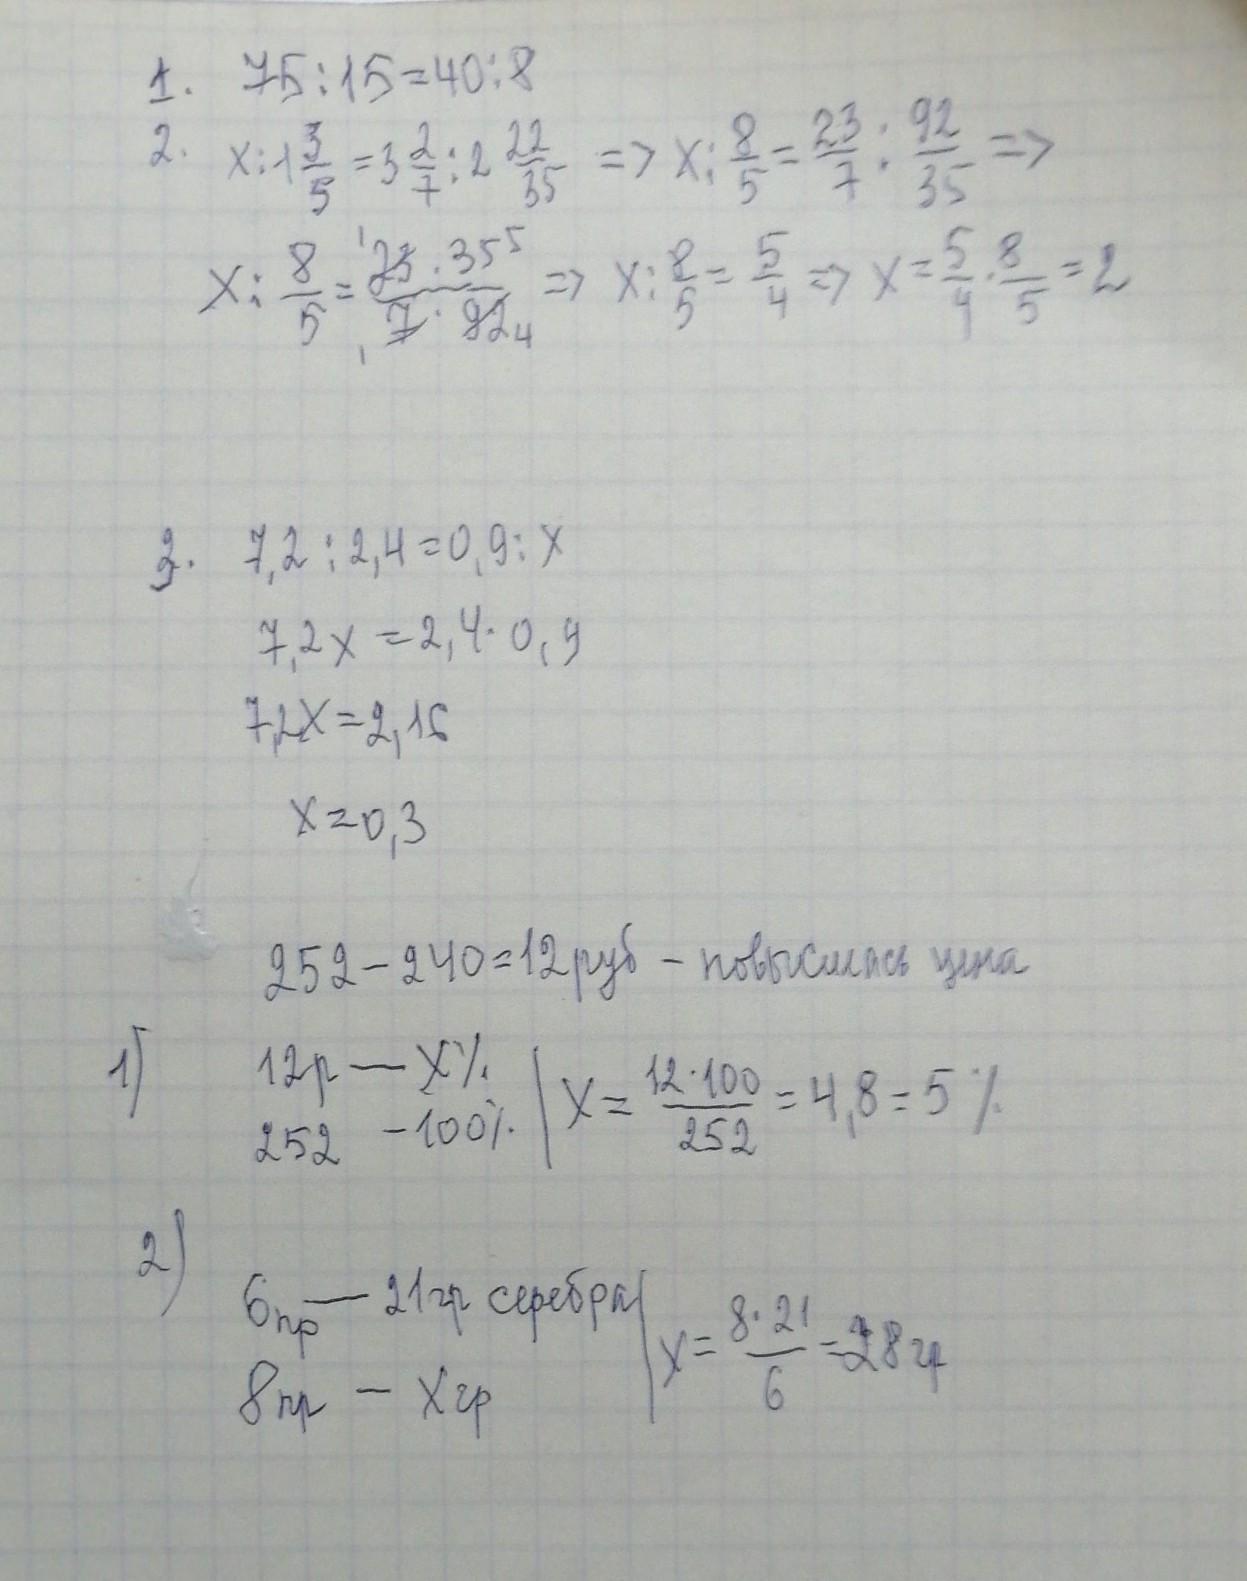 1. 75:15=40:8
2. x:1 3/5 = 3 2/7 : 2 22/35 => x: 8/5 = 23/7 : 92/35 =>
x: 8/5 = 23·35/7·92 => x: 8/5 = 5/4 => x = 5/4 · 8/5 = 2
3. 7,2:2,4=0,9:x
7,2x=2,4·0,9
7,2x=2,16
x=0,3
252-240=12руб - повысилась цена
1) 12р — x%
252 - 100% | x = 12·100/252 = 4,8 = 5%
2) 6пр — 21гр серебра
8пр - xгр | x = 8·21/6 = 28гр